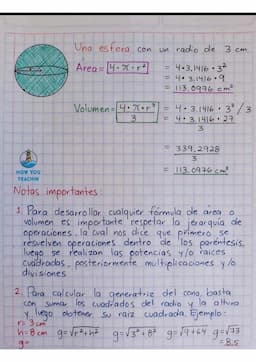 Una esfera con un radio de 3 cm.
Area = 4·π·r² = 4·3.1416·3²
= 4·3.1416·9
= 113.0976 cm²
Volumen = 4·π·r³ / 3 = 4·3.1416·3³/3
= 4·3.1416·27 / 3
= 339.2928 / 3
= 113.0976 cm³
HOW YOU
TEACHIN
Notas importantes:
1. Para desarrollar cualquier fórmula de area o
volumen es importante respetar la jerarquía de
operaciones, la cual nos dice que primero se
resuelven operaciones dentro de los paréntesis,
luego se realizan las potencias y/o raíces
cuadradas, posteriormente multiplicaciones y/o
divisiones
2. Para calcular la generatriz del cono, basta
con sumar los cuadrados del radio y la altura
y luego obtener su raíz cuadrada. Ejemplo:
r= 3 cm
h= 8 cm g=√r²+h² g=√3²+8² g=√9+64 g=√73
g= = 8.5